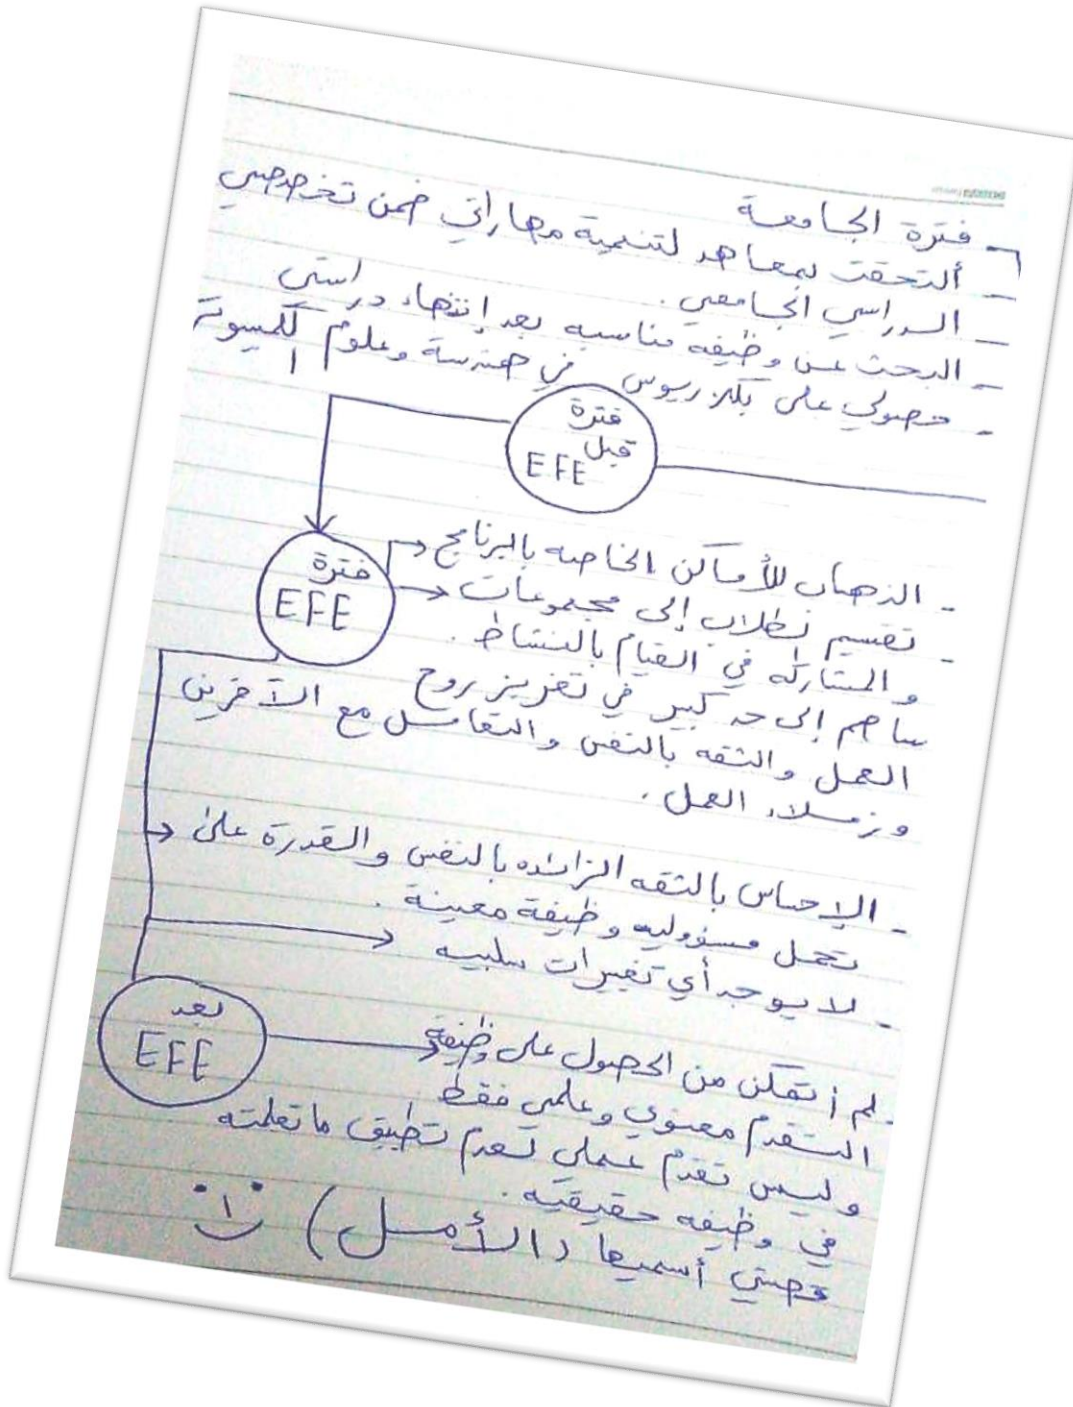 - فترة الجامعة
- ألتحقت بمعاهد لتنمية مهاراتي ضمن تخصصي
الدراسي الجامعي .
- البحث عن وظيفة مناسبه بعد إنتهاء دراستي
- حصولي على بكلاريوس في هندسة وعلوم الكمبيوتر
فترة
قبل
EFE
- الذهاب للأماكن الخاصه بالبرنامج
فترة
EFE
- تقسيم الطلاب إلى مجموعات
والمشاركه في القيام بالنشاط .
ساهم إلى حد كبير في تعزيز روح
العمل والثقه بالنفس والتعامل مع الآخرين
وزملاء العمل .
- الإحساس بالثقه الزائده بالنفس والقدرة على
تحمل مسؤوليه وظيفة معينة .
- لا يوجد أي تغيرات سلبيه
بعد
EFE
- لم أتمكن من الحصول على وظيفة
التقدم معنوي وعلمي فقط
وليس تقدم عملي لعدم تطبيق ما تعلمته
في وظيفه حقيقيه .
قصتي أسميها (الأمل)